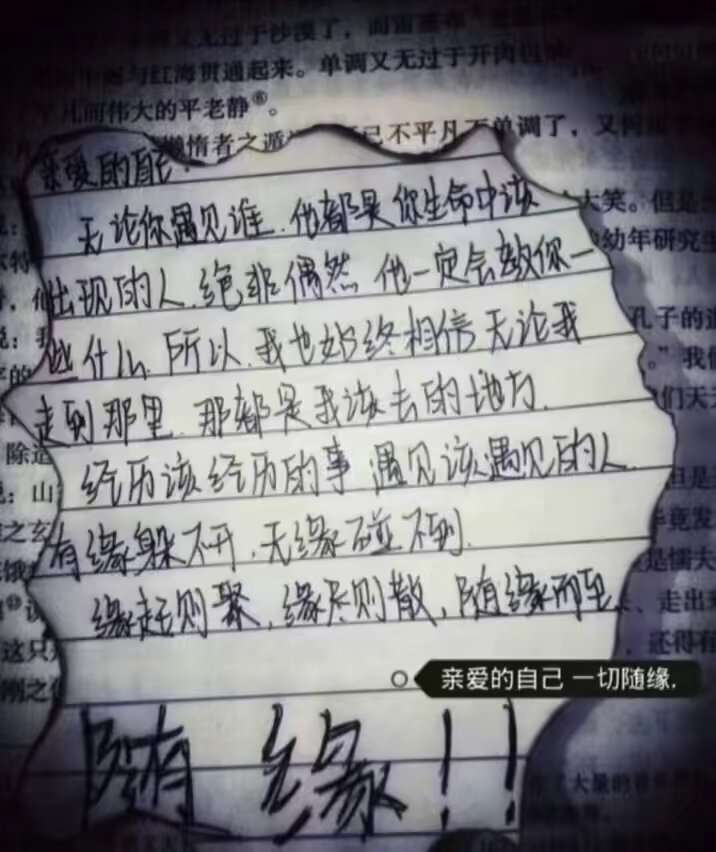 又无过于沙漠了，而雷峰
与红海贯通起来。单调又无过于开肉包
凡而伟大的平老静⑥。
懒惰者之遁
己不平凡而单调了，又何
亲爱的自己：
无论你遇见谁.他都是你生命中该
大笑。但是
出现的人.绝非偶然 他一定会教你一
幼年研究生
些什么.所以.我也始终相信无论我
孔子的道
走到那里.那都是我该去的地方.
们天天
经历该经历的事 遇见该遇见的人
除造
但是
说：山
有缘躲不开.无缘碰不到.
之玄
毕竟发
是懦大
缘起则聚，缘尽则散，随缘而至
走出
这只
还得有
亲爱的自己 一切随缘,
刚之
随 缘！！
大量的